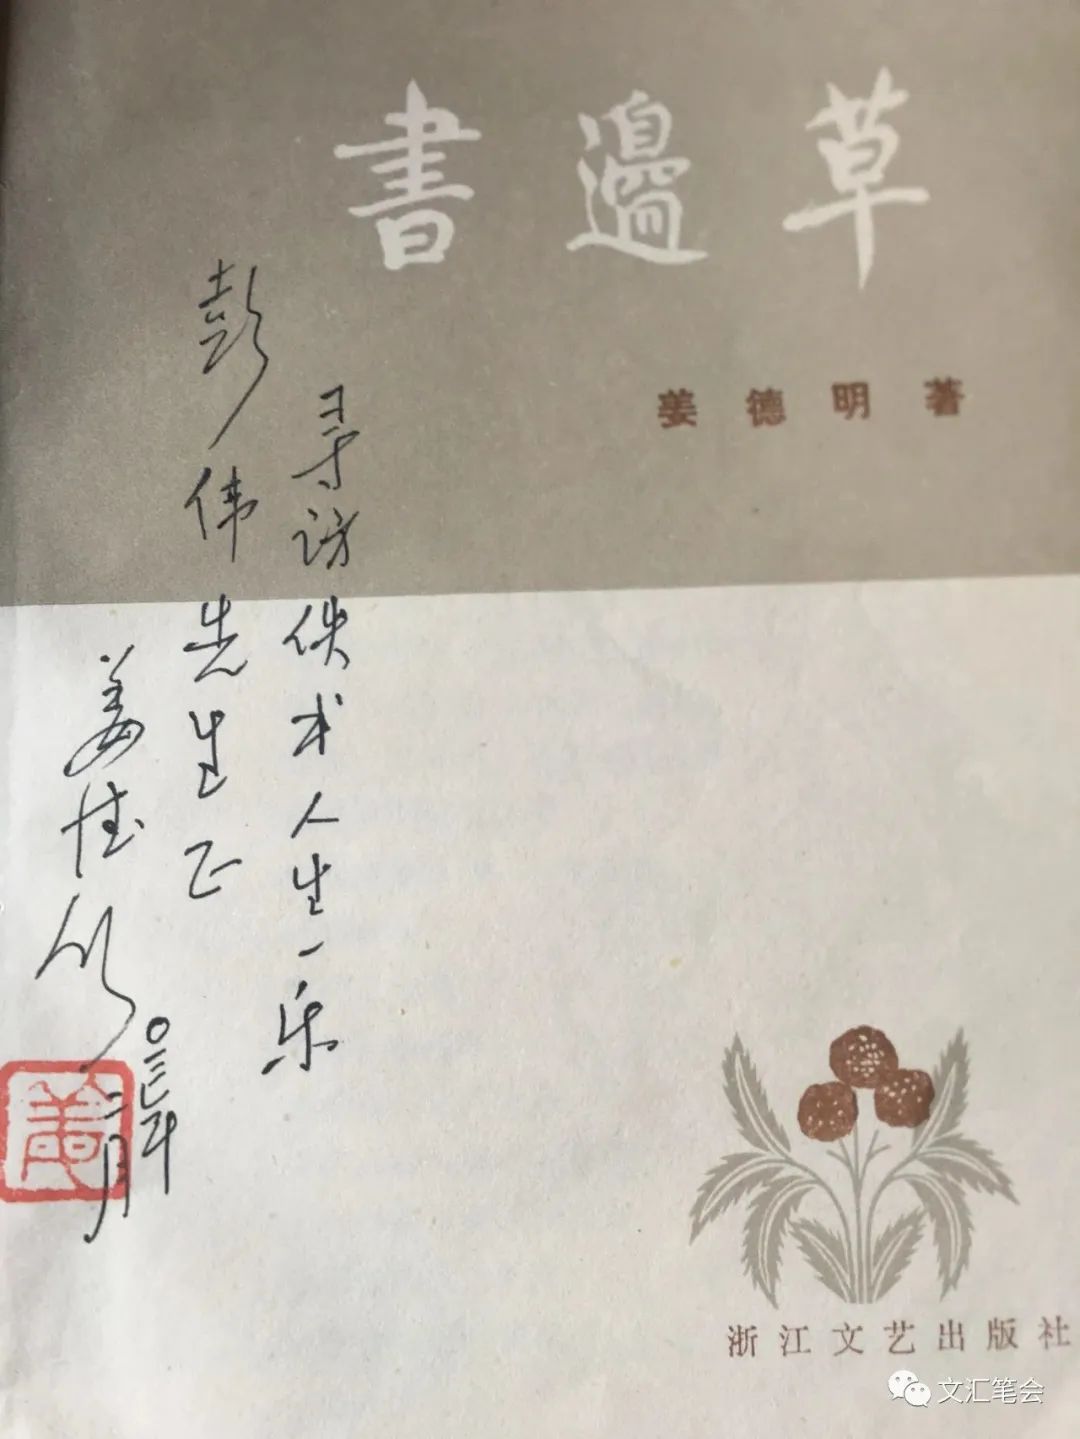 書邊草
姜德明著
寻访佚书人生一乐
彭伟先生正
姜德明
二月
浙江文艺出版社
文汇笔会